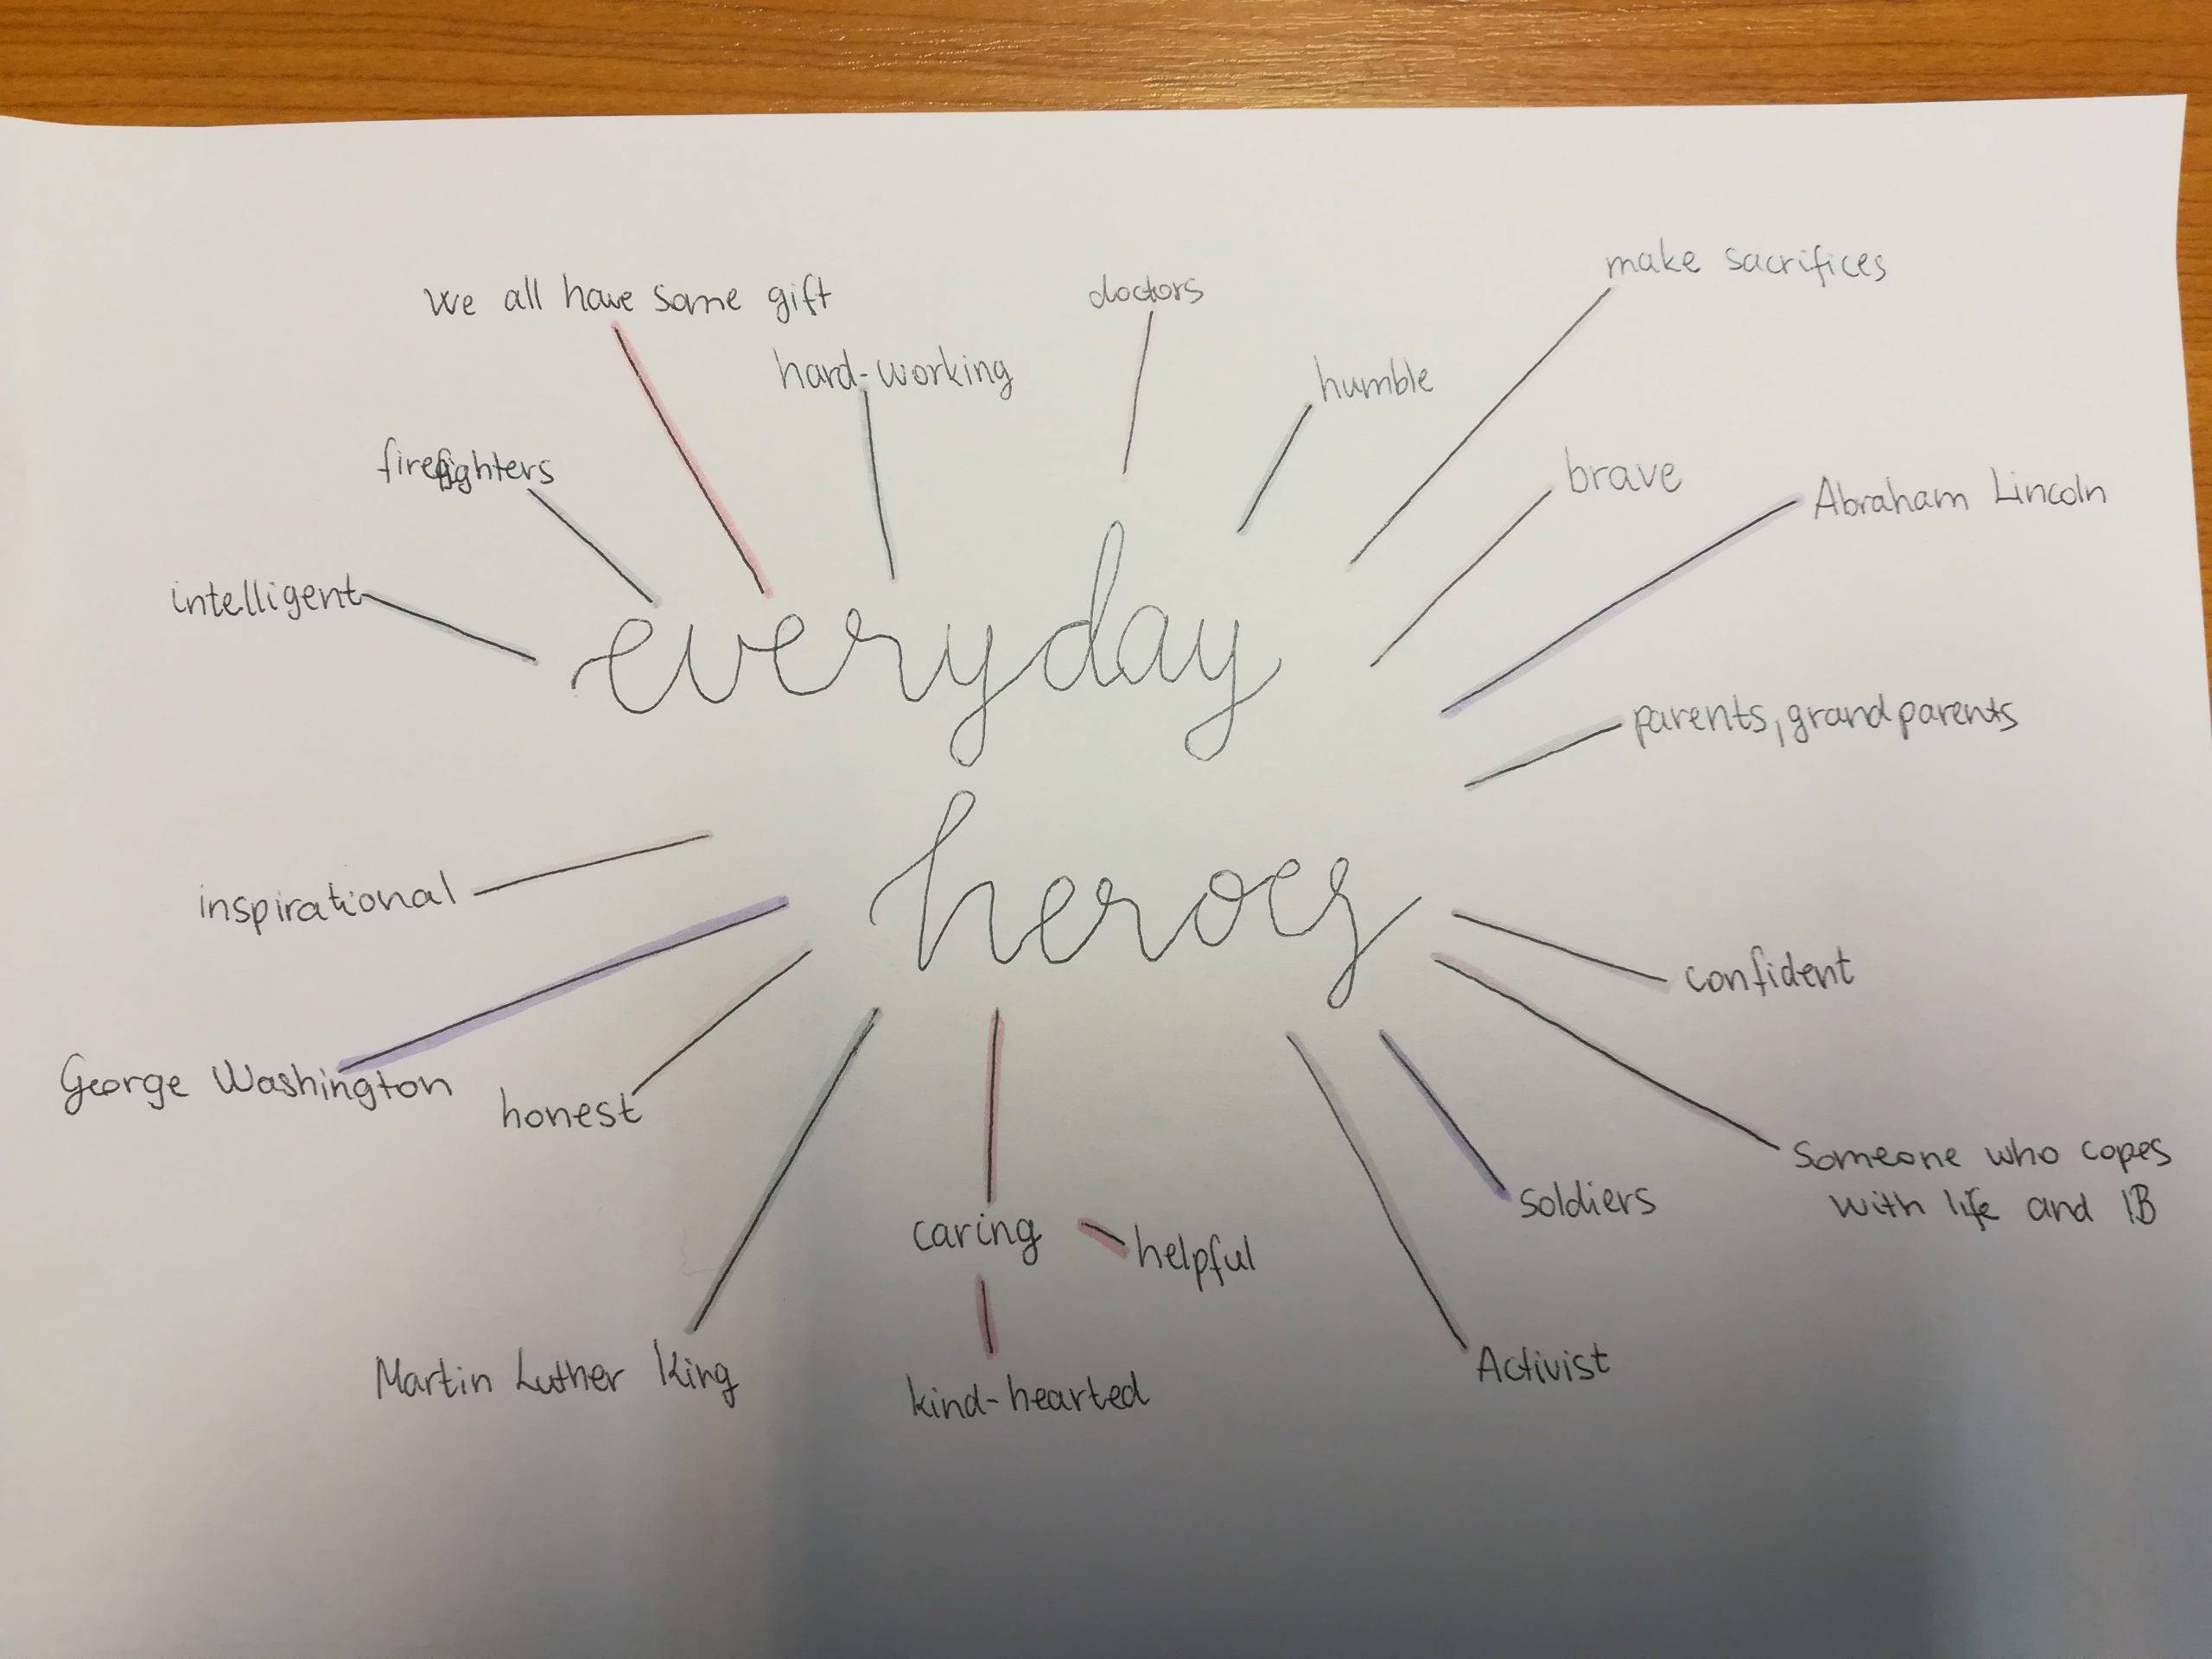 make sacrifices
we all have some gift
doctors
hard-working
humble
firefighters
brave
Abraham Lincoln
intelligent
everyday
parents, grandparents
heroes
inspirational
confident
George Washington
honest
Someone who copes
with life and IB
soldiers
caring
helpful
Martin Luther King
Activist
kind-hearted